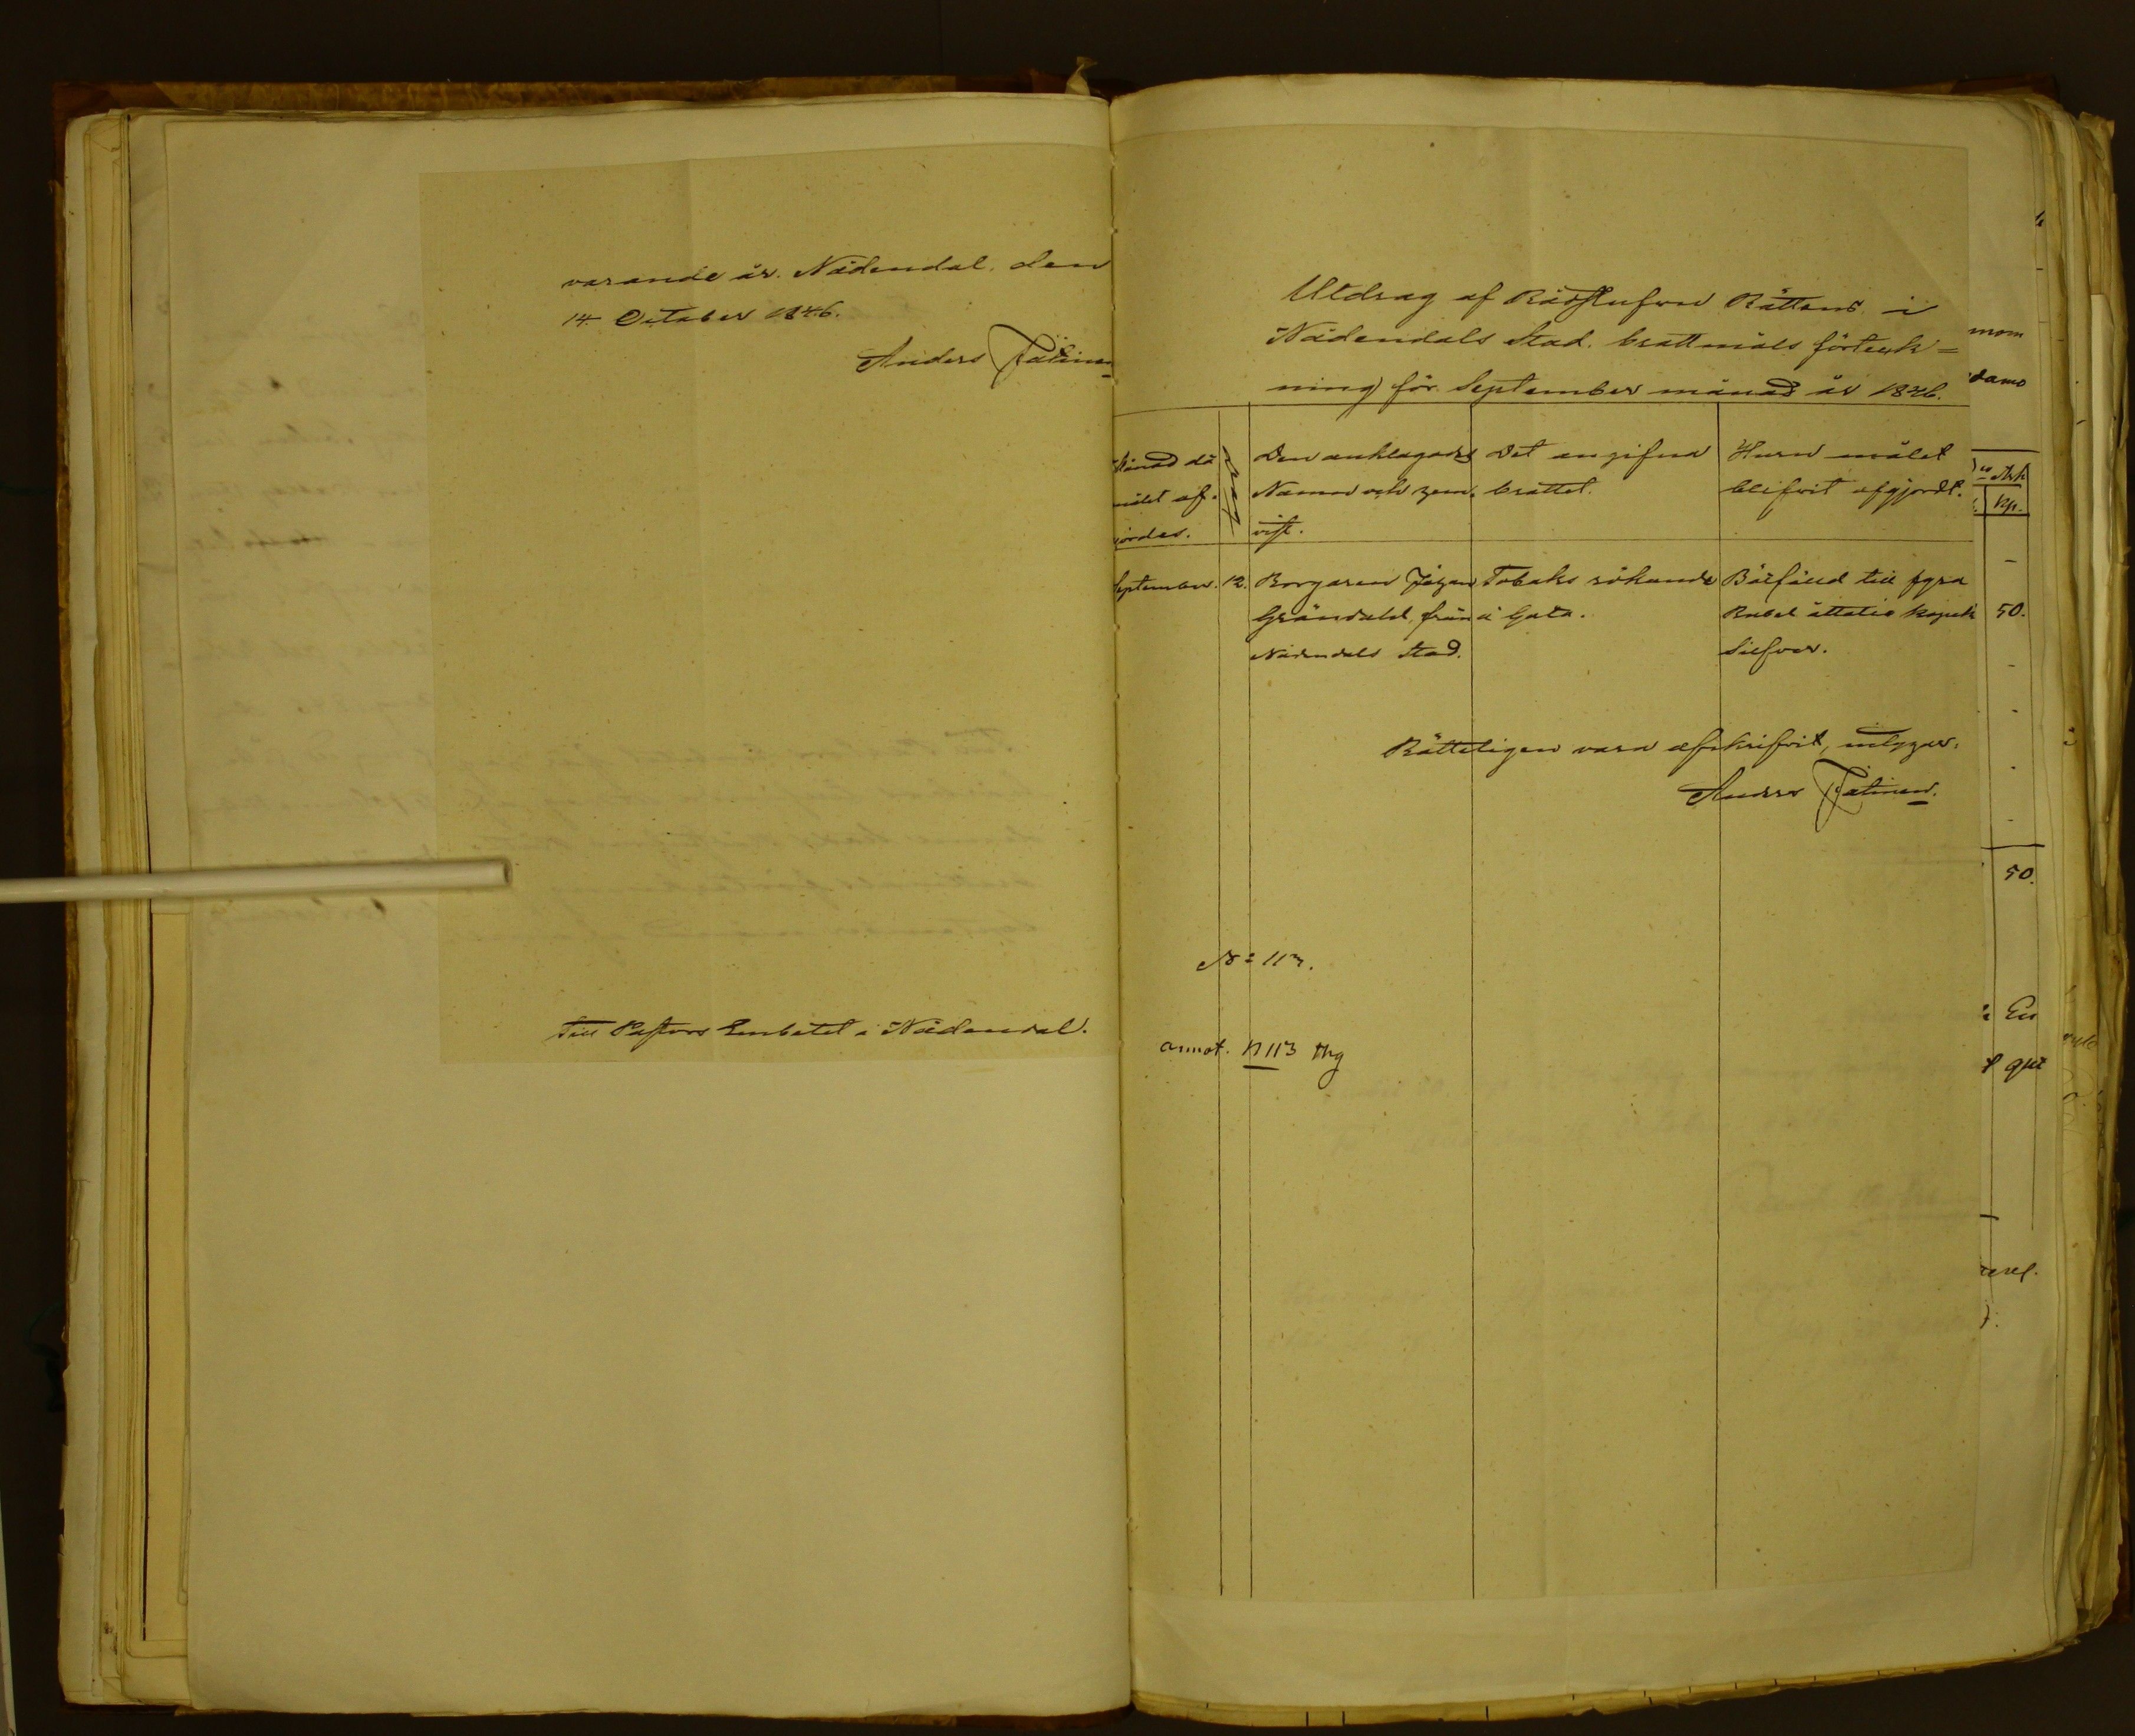 varande år. Nådendal, den
14 October 1846.
Anders
Till Pastors Embetet i Nådendal.
Utdrag af Rådstufvu Rättens i
Nådendals Stad, brottmåls förteck=
ning för September månad år 1846.
Månad då
målet af-
gjordes.
Den anklagades
Namn och hem-
vist.
Det angifna
brottet.
Huru målet
blifvit afgjordt.
September. 12.
Borgaren Johan
Gröndahl, från
Nådendals Stad.
Tobaks rökande
å Gata.
Bötfälld till fyra
Rubel åttatio kopek
Silfver.
Rätteligen vara afskrifvit, intygar,
Anders
No 113.
annot. N 113
mom
damo
Kp.
50.
50.